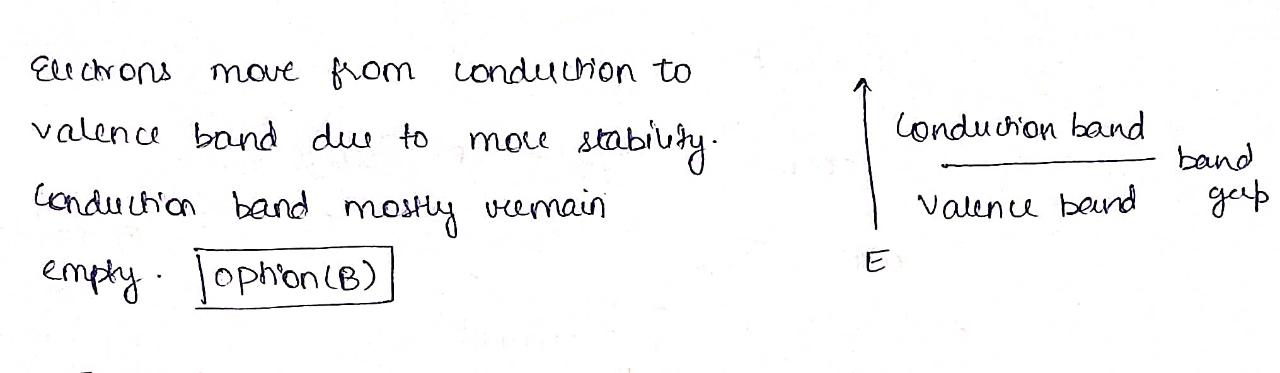 Electrons move from conduction to
valence band due to more stability.
Conduction band mostly remain
empty. option (B)
Conduction band
band
gap
Valence band
E